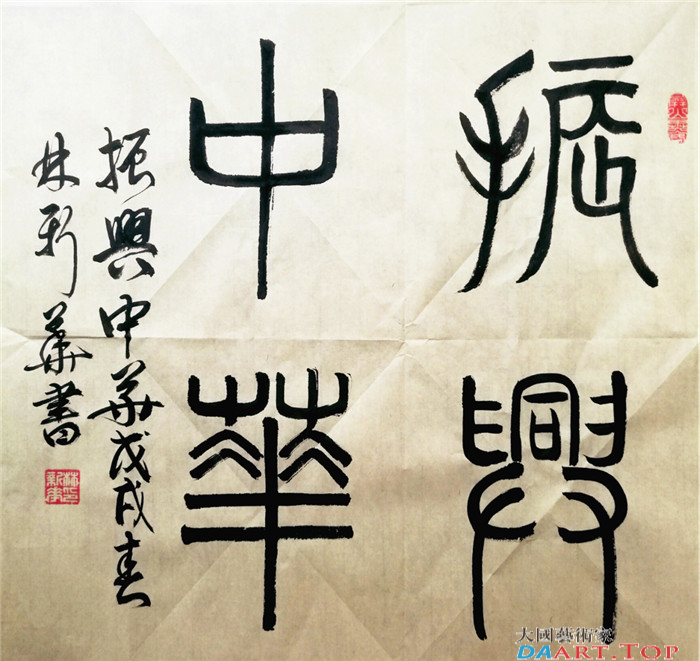 振興
中華
振興中華戊戌春
林新華書
大國藝術家
DAART.TOP